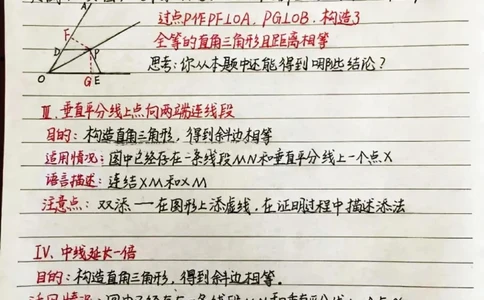 过点P作PF⊥OA,PG⊥OB.构造了
全等的直角三角形且距离相等
思考:你从本题中还能得到哪些结论?
A
F
D
P
O
G E
Ⅲ.垂直平分线上点向两端连线段
目的:构造直角三角形,得到斜边相等
适用情况:图中已经存在一条线段MN和垂直平分线上一个点X
语言描述:连结XM和XM
注意点:双添——在图形上添虚线,在证明过程中描述添法
Ⅳ.中线延长一倍
目的:构造直角三角形,得到斜边相等.